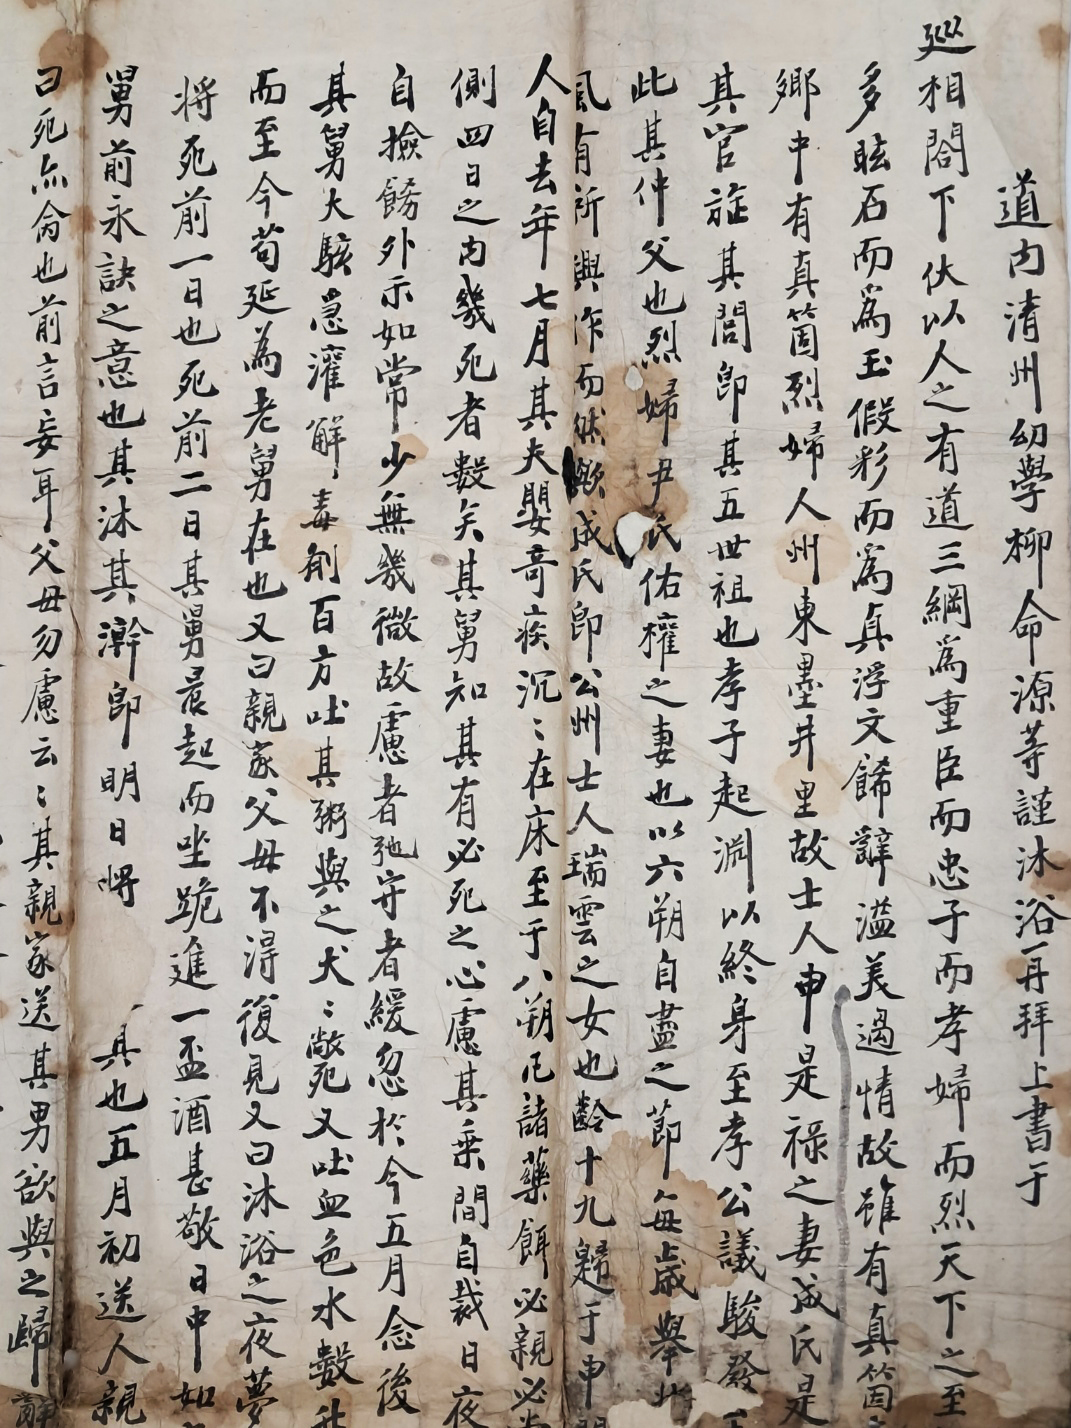 道內清州幼學柳命源等謹沐浴再拜上書于
巡相閤下伏以人之有道三綱爲重臣而忠子而孝婦而烈天下之至
多眩石而爲玉假彩而爲真浮文餙辭溢美過情故雖有真箇
鄉中有真箇烈婦人州東墨井里故士人申是祿之妻成氏是
其官旌其閭卽其五世祖也孝子起淵以終身至孝公議駿發
此其仲父也烈婦尹氏佑權之妻也以六朔自盡之節每歲舉
風有所興作而然歟成氏卽公州士人瑞雲之女也齡十九歸于申
人自去年七月其夫嬰奇疾沉〻在床至于八朔凡諸藥餌必親必
側四日之內幾死者數矣其舅知其有必死之心慮其乘間自裁日夜
自撿餙外示如常少無幾微故慮者弛守者緩忽於今五月念後
其舅大駭急灌解毒劑百方吐其粥與之犬〻斃死又吐血色水數
而至今苟延爲老舅在也又曰親家父母不得復見又曰沐浴之夜夢
將死前一日也死前二日其舅晨起而坐跪進一盃酒甚敬日中如
舅前永訣之意也其沐其澣卽明日將 具也五月初送人親
曰死亦命也前言妄耳父母勿慮云〻其親家送其男欲與之歸辭